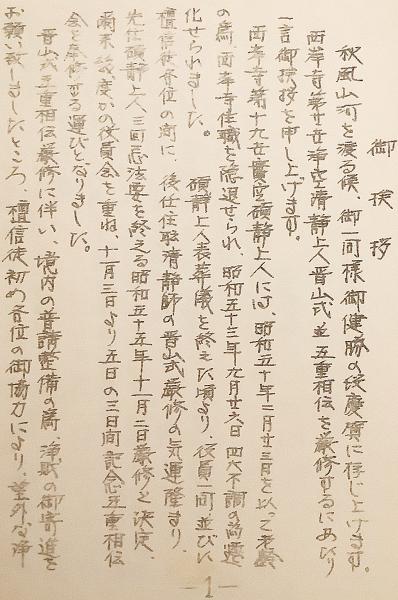 御挨拶
秋風山河を渡る候、御一同様御健勝の段慶賀に存じ上げます。
西岸寺第廿世浄空清静上人晋山式並五重相伝を厳修するにあたり
一言御挨拶を申し上げます。
西岸寺第十九世實空碩静上人には、昭和五十年二月廿三日を以って老齢
の為、西岸寺住職を隠退せられ、昭和五十三年九月廿六日四大不調の為遷
化せられました。 碩静上人表葬儀を終えた頃より、役員一同並びに
檀信徒各位の間に、後任住職清静師の晋山式厳修の気運隆まり、
先住碩静上人三回忌法要を終える昭和五十五年十一月二日厳修と決定、
爾来、幾度かの役員会を重ね、十一月三日より五日の三日間記念五重相伝
会を厳修する運びとなりました。
晋山式五重相伝厳修に伴い、境内の普請整備の為、浄財の御寄進を
お願い致しましたところ、檀信徒初め各位の御協力により、望外な浄
—1—